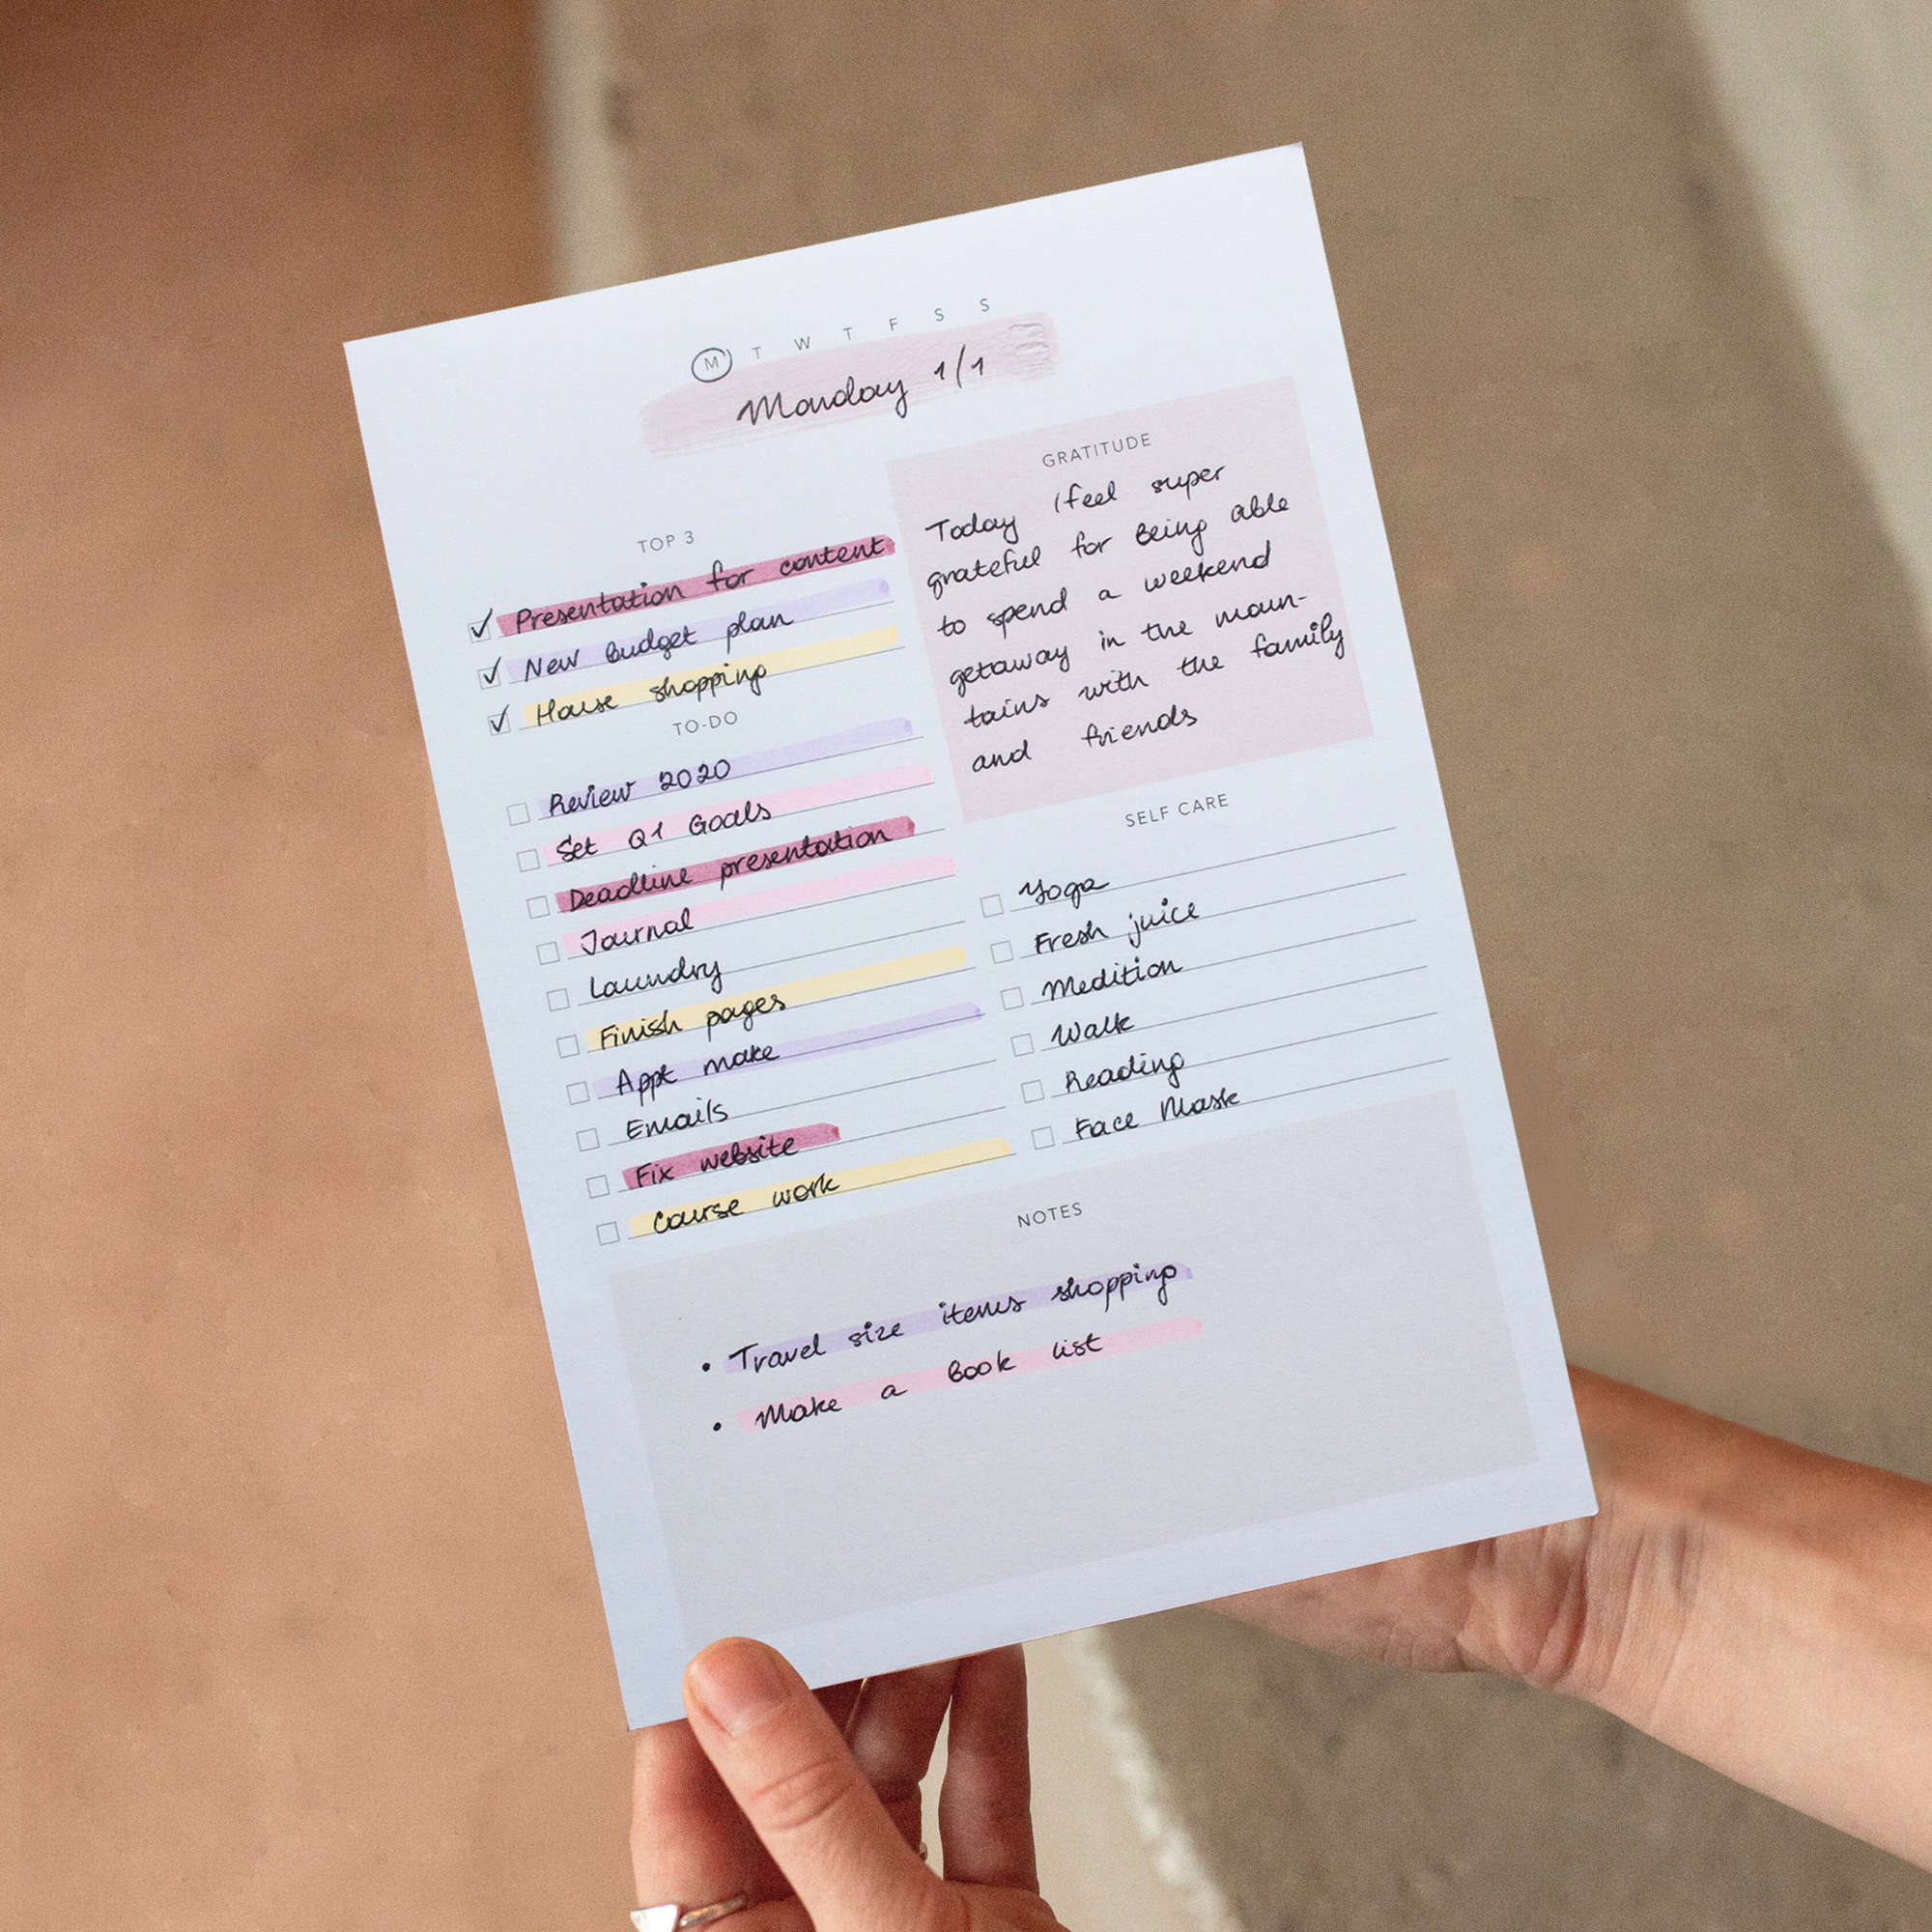 M T W T F S S
Monday 1/1
TOP 3
Presentation for content
New budget plan
House shopping
TO-DO
Review 2020
Set Q1 Goals
Deadline presentation
Journal
Laundry
Finish pages
Appt make
Emails
Fix website
Course work
GRATITUDE
Today I feel super
grateful for being able
to spend a weekend
getaway in the moun-
tains with the family
and friends
SELF CARE
Yoga
Fresh juice
Medition
Walk
Reading
Face Mask
NOTES
• Travel size items shopping
• Make a book list